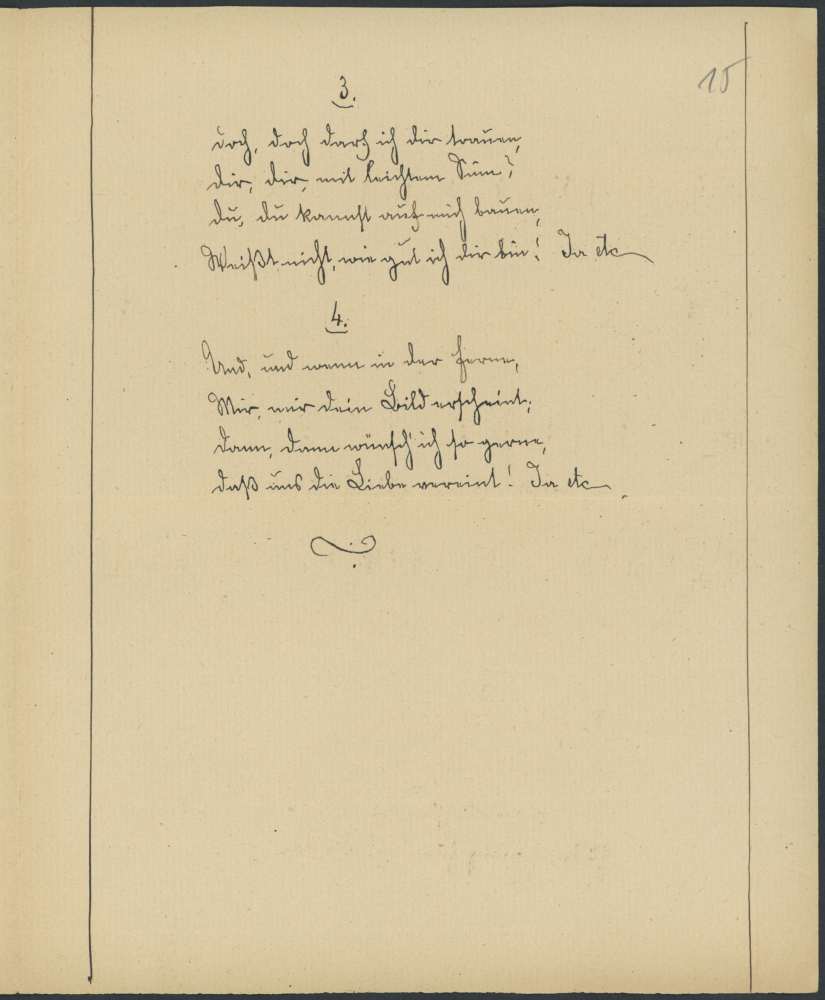 15
3.
doch, doch darf ich dir trauen,
dir, dir, mit leichtem Sinn?
du, du kannst auf mich bauen,
Weißt nicht, wie gut ich dir bin! Ja etc
4.
Und, und wenn in der Ferne,
Mir, mir dein Bild erscheint;
dann, dann wünsch' ich so gerne,
daß uns die Liebe vereint! Ja etc.